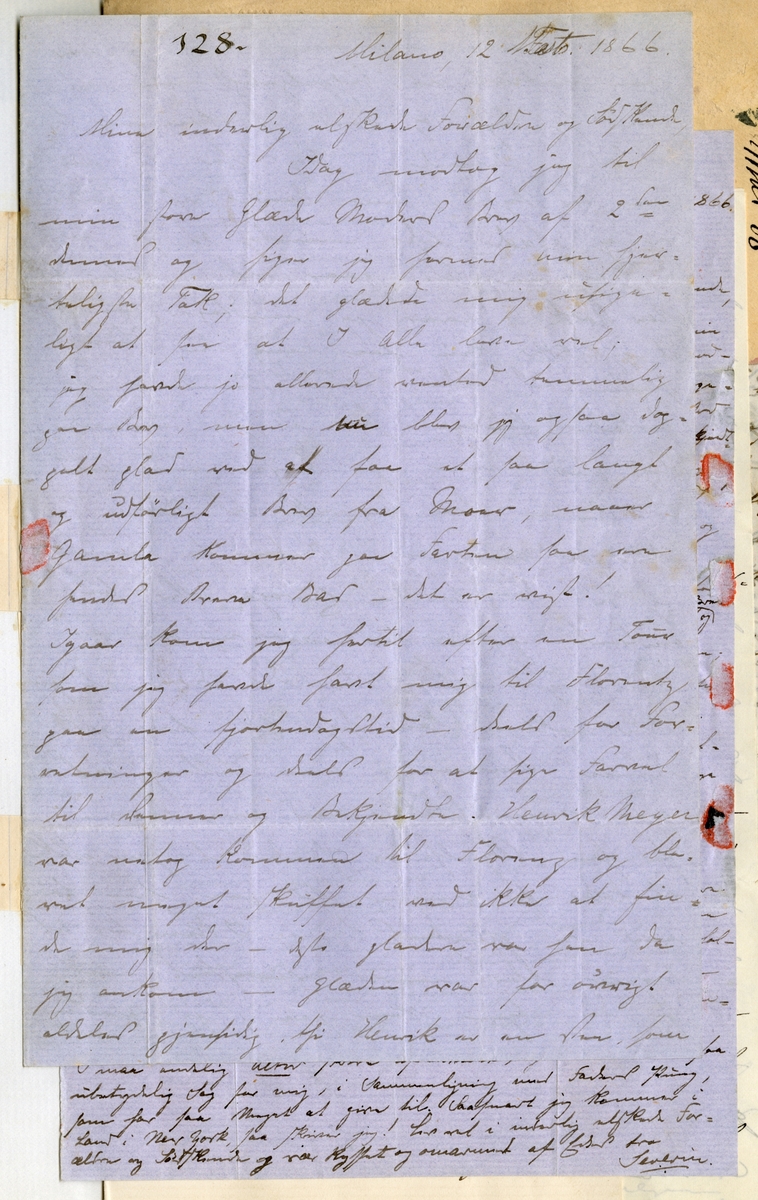 128.
Milano, 12 Feb. 1866.
Mine inderlig elskede Forældre og Sødskende,
Idag modtog jeg til
min store Glæde Moders Brev af 2den
dennes og siger jeg hermed min hjer-
teligste Tak; det glædede mig usige-
ligt at see at I Alle leve vel;
jeg havde jo allerede ventet temmelig
paa Brev, men nu blev jeg ogsaa dog-
gelt glad ved at faae et saa langt
og udförligt Brev fra Moer, naaer
Gamle kommer paa Farten saa
sendes Breve Bas - det er vist!
Igaar kom jeg hertil efter en Tour
som jeg havde havt mig til Florentz
paa en fjortendagstid - deels for For-
retninger og deels for at sige Farvel
til Venner og Bekjendte. Henrik Meyer
var netop kommen til Florenz og ble-
vet meget skuffet ved ikke at fin-
de mig der - desto gladere var han da
jeg ankom - Glæden var for övrigt
aldeles gjensidig, thi Henrik er en Ven, som
866.
I maa endelig
ubetydelig Sag for mig, i Sammenligning med Faders
som har saa Meget at give til. Saasnart jeg kommer i
Land i New York, saa skriver jeg! Lev vel i inderlig elskede For-
ældre og Sødskende og vær kysset og omarmet af Eders tro
Severin.